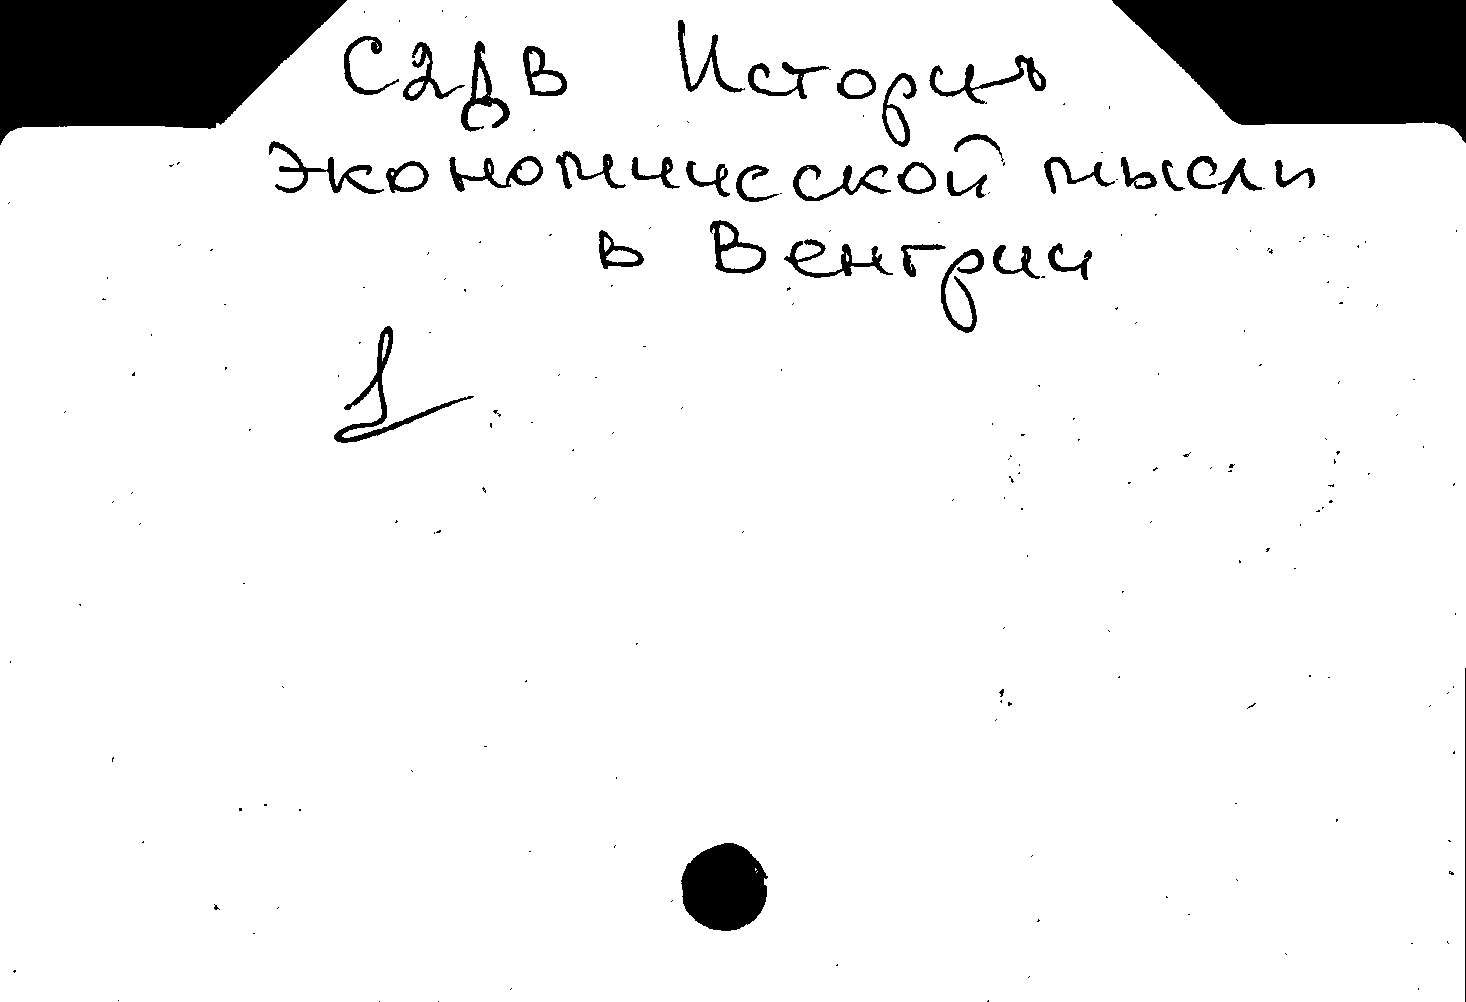 С2дВ История
экономической мысли
в Венгрии
1